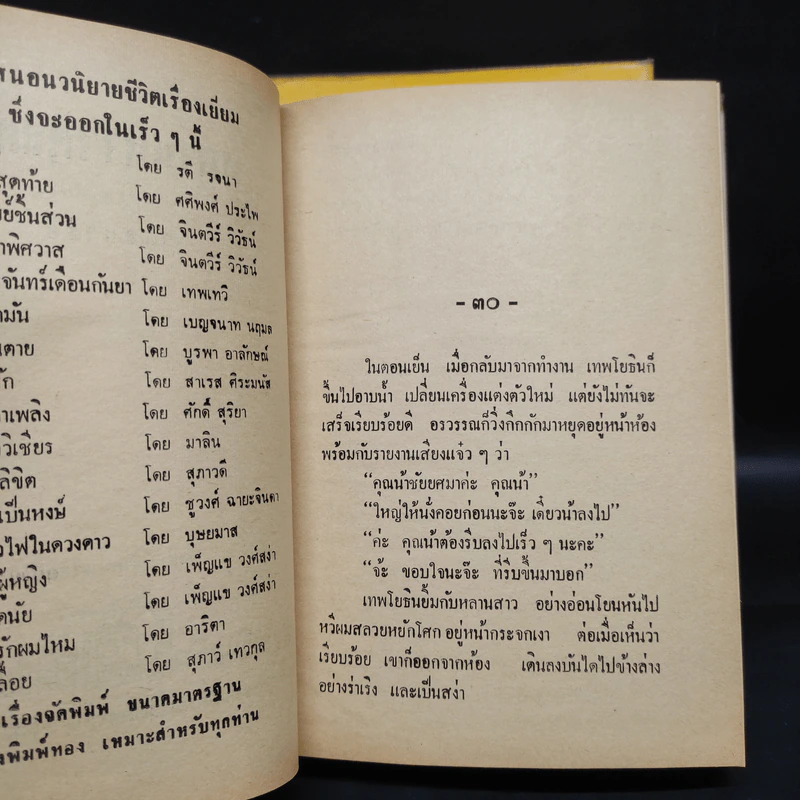 สนอนวนิยายชีวิตเรื่องเยี่ยม
ซึ่งจะออกในเร็ว ๆ นี้
สุดท้าย โดย รตี รจนา
ชิ้นส่วน โดย ศศิพงศ์ ประไพ
พิศวาส โดย จินตวีร์ วิวัธน์
โดย จินตวีร์ วิวัธน์
จันทร์เดือนกันยา โดย เทพเทวี
มัน โดย เบญจนาท นฤมล
ตาย โดย บูรพา อาลักษณ์
รัก โดย สาเรส ศิระมนัส
เพลิง โดย ศักดิ์ สุริยา
วิเชียร โดย มาลิน
ลิขิต โดย สุภาวดี
เป็นหงษ์ โดย ชูวงศ์ ฉายะจินดา
ไฟในดวงดาว โดย บุษยมาส
ผู้หญิง โดย เพ็ญแข วงศ์สง่า
ดนัย โดย เพ็ญแข วงศ์สง่า
รักผมไหม โดย อาริตา
ลื่อย โดย สุภาว์ เทวกุล
เรื่องจัดพิมพ์ ขนาดมาตรฐาน
งพิมพ์ทอง เหมาะสำหรับทุกท่าน
- ๓๐ -
ในตอนเย็น เมื่อกลับมาจากทำงาน เทพโยธินก็
ขึ้นไปอาบน้ำ เปลี่ยนเครื่องแต่งตัวใหม่ แต่ยังไม่ทันจะ
เสร็จเรียบร้อยดี อรวรรณก็วิ่งกึกกักมาหยุดอยู่หน้าห้อง
พร้อมกับรายงานเสียงแจ๋ว ๆ ว่า
“คุณน้าชัยยศมาค่ะ คุณน้า”
“ใหญ่ให้นั่งคอยก่อนนะจ๊ะ เดี๋ยวน้าลงไป”
“ค่ะ คุณน้าต้องรีบลงไปเร็ว ๆ นะคะ”
“จ้ะ ขอบใจนะจ๊ะ ที่รีบขึ้นมาบอก”
เทพโยธินยิ้มกับหลานสาว อย่างอ่อนโยนหันไป
หวีผมสลวยหยักโศก อยู่หน้ากระจกเงา ต่อเมื่อเห็นว่า
เรียบร้อย เขาก็ออกจากห้อง เดินลงบันไดไปข้างล่าง
อย่างร่าเริง และเป็นสง่า